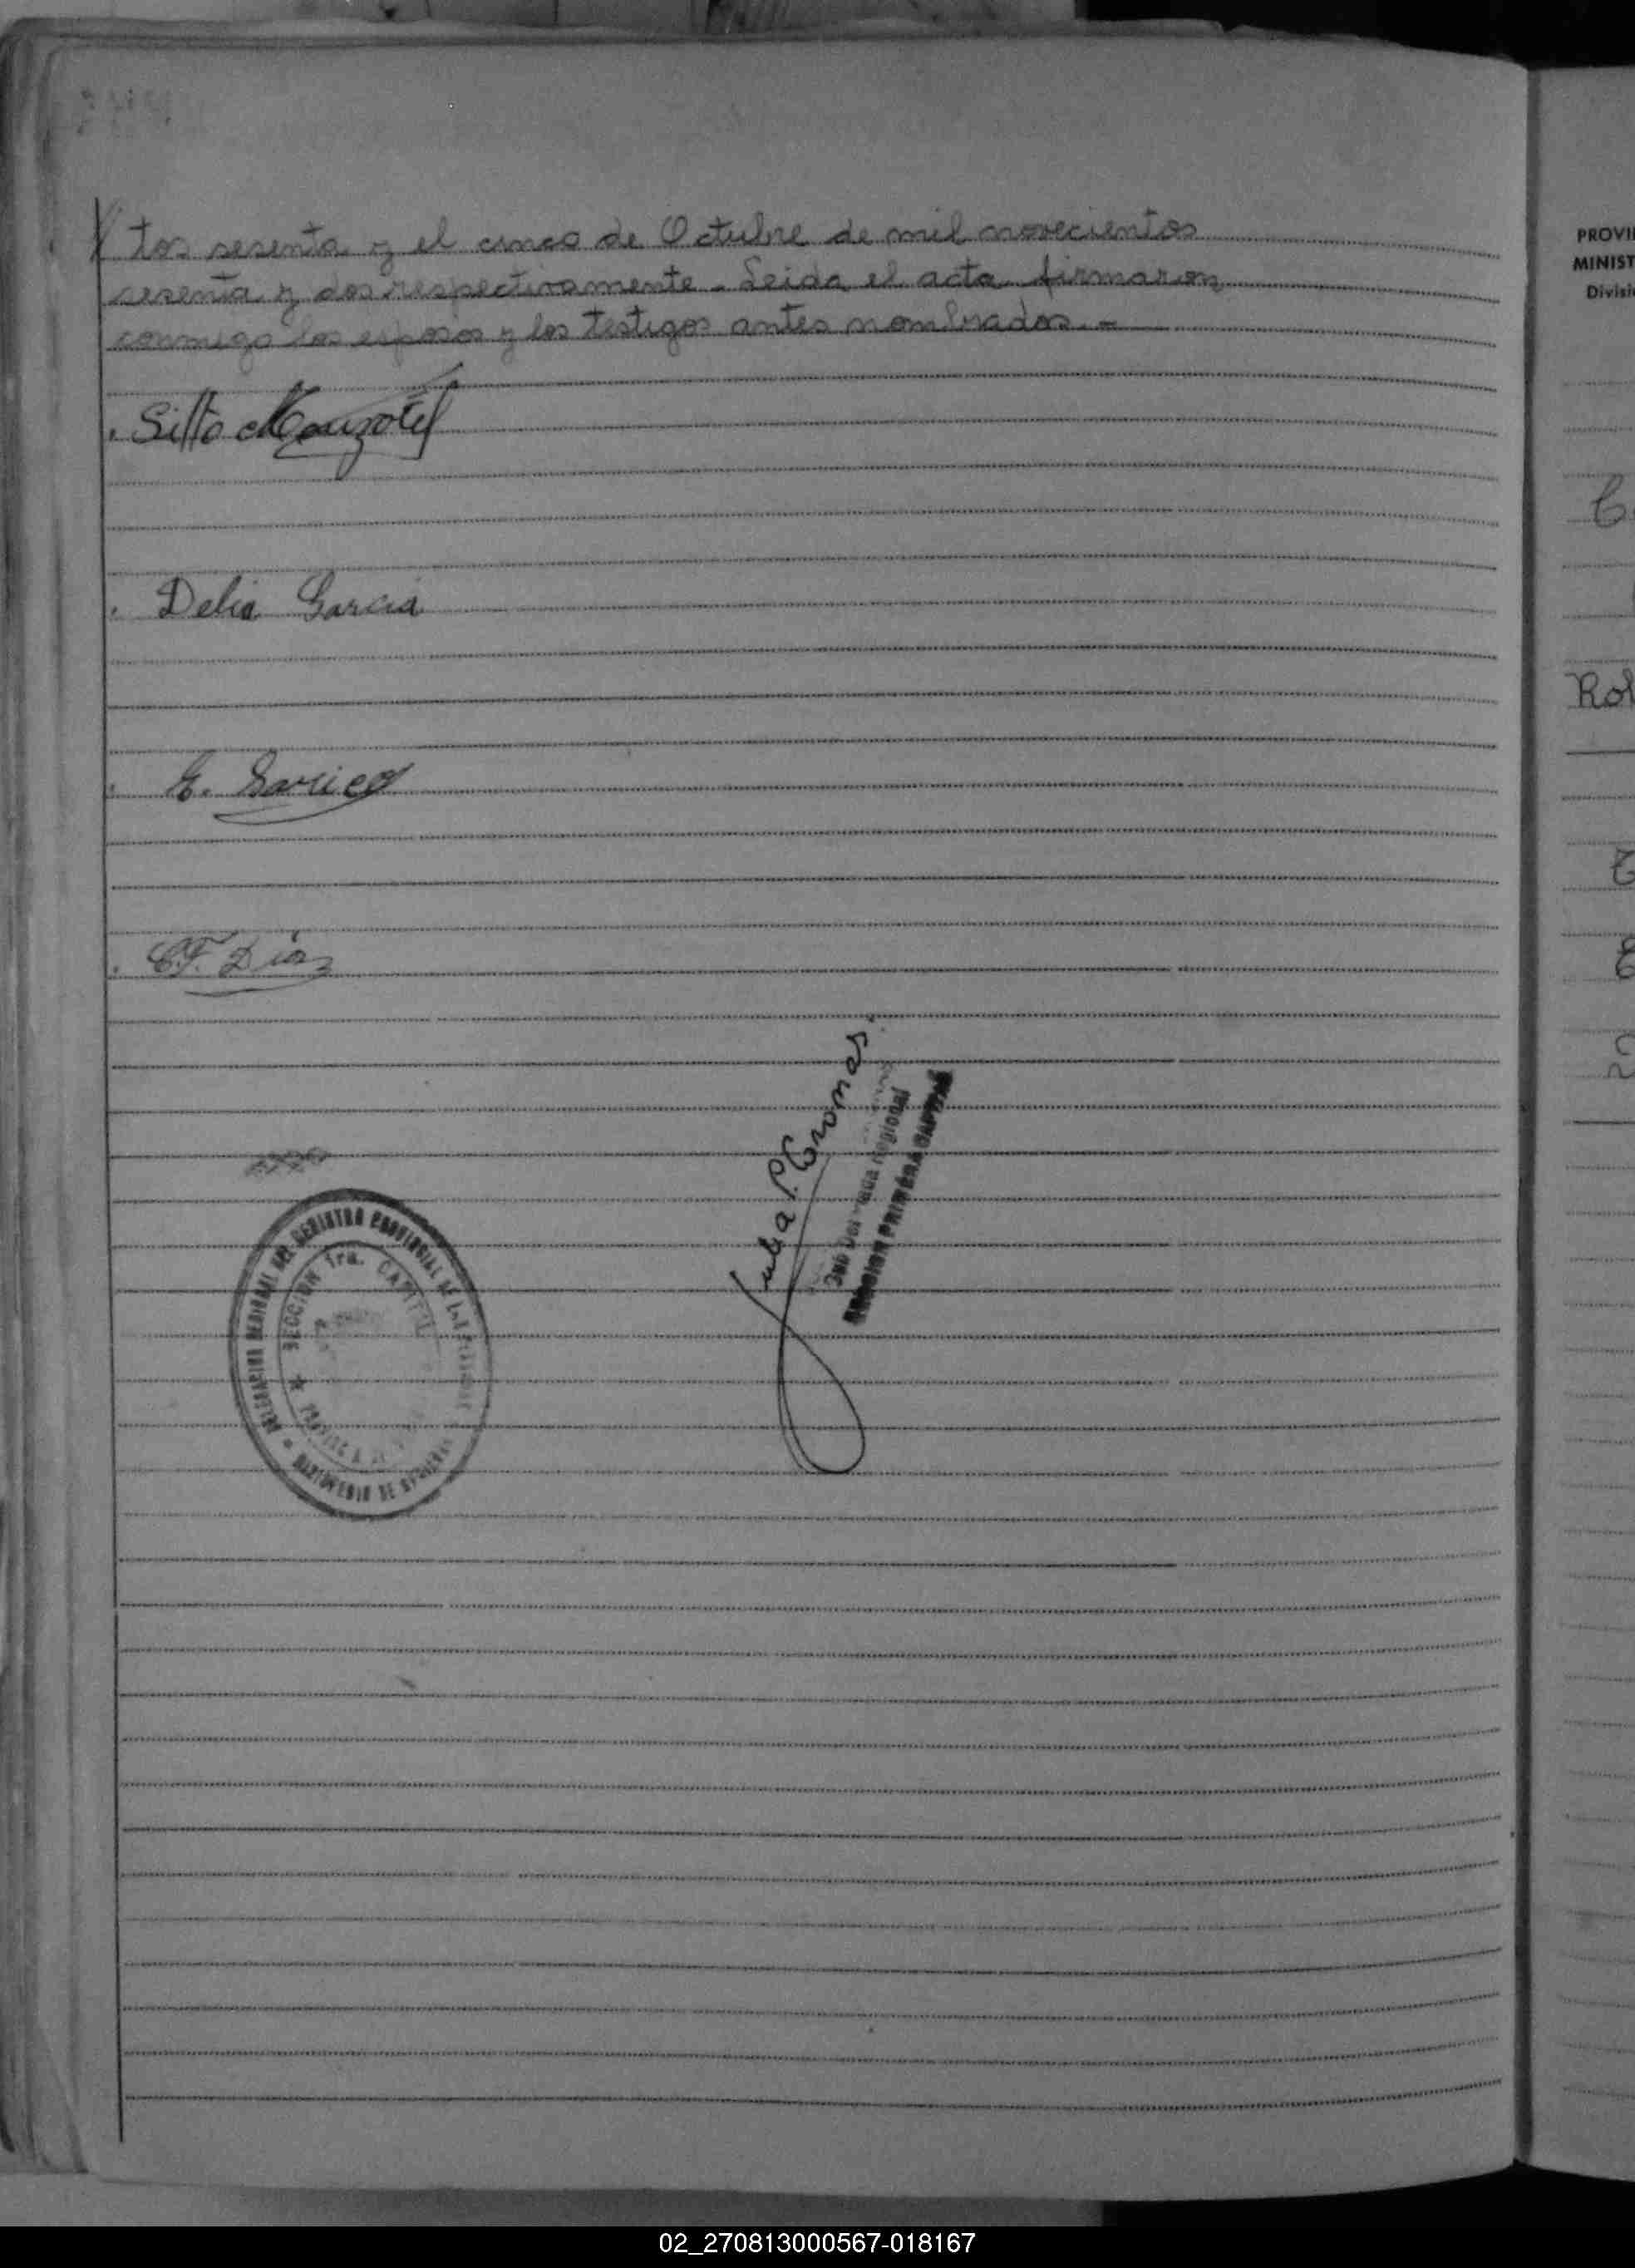 tos sesenta y el cinco de Octubre de mil novecientos
sesenta y dos respectivamente. Leida el acta firmaron
conmigo los esposos y los testigos antes nombrados. -
Delia Garcia
C.F. Diaz
Julia P.
Regional
SECCION PRIMERA CAPITAL
DELEGACION REGIONAL DEL REGISTRO PROVINCIAL DE LAS PERSONAS
SECCION 1ra. CAPITAL
MINISTERIO DE GOBIERNO
PROVI
MINIST
Divisi
Rol
02_270813000567-018167